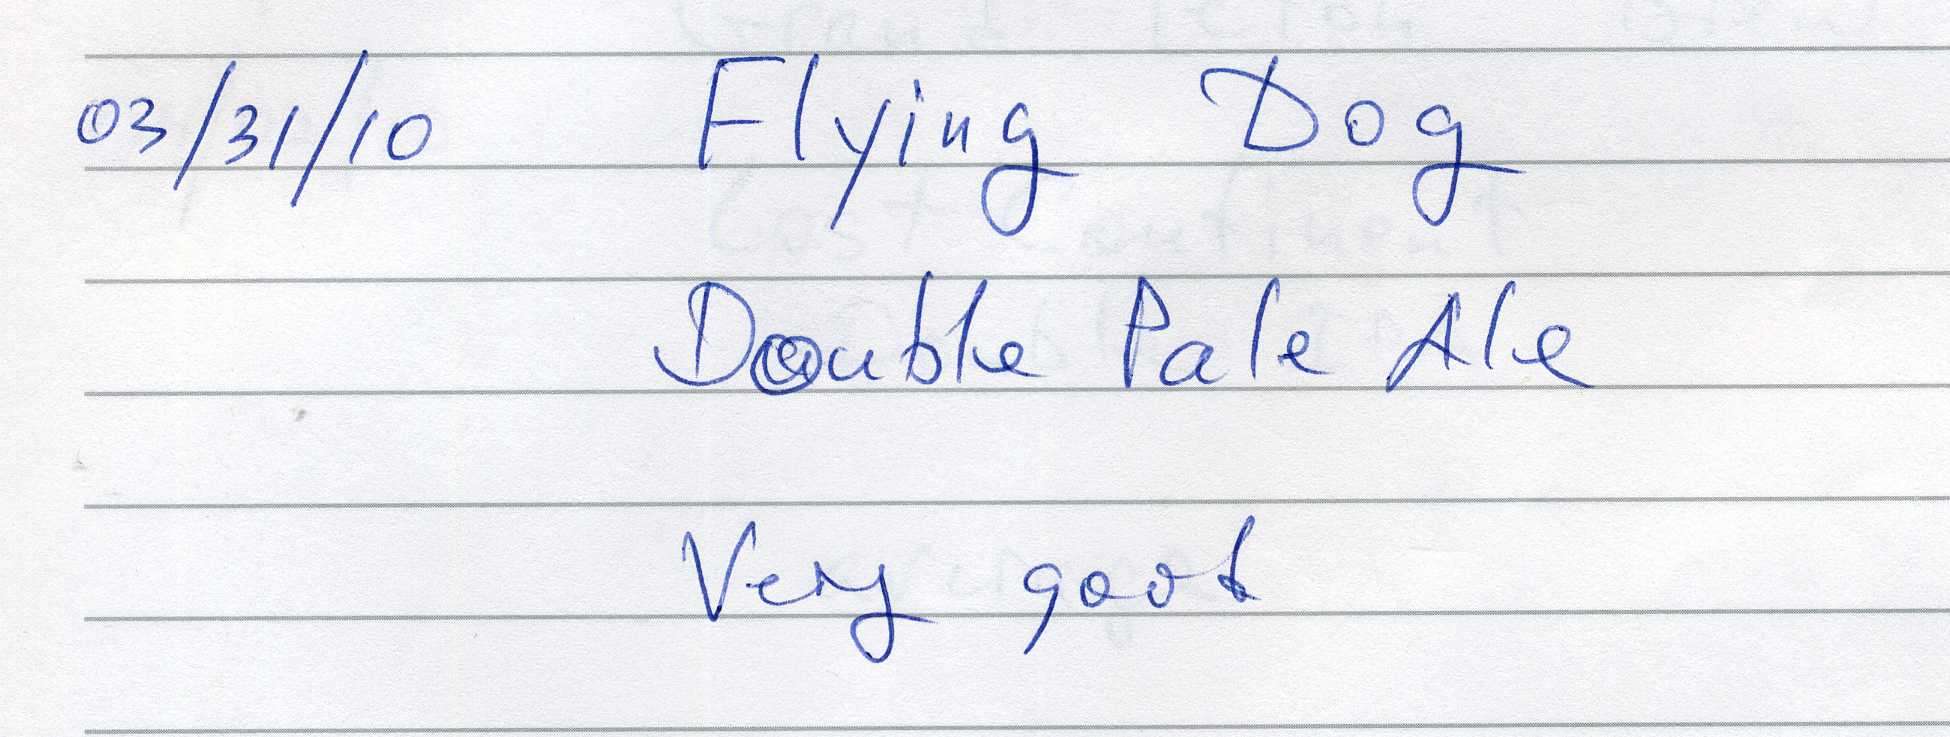 03/31/10 Flying Dog
Double Pale Ale
Very good